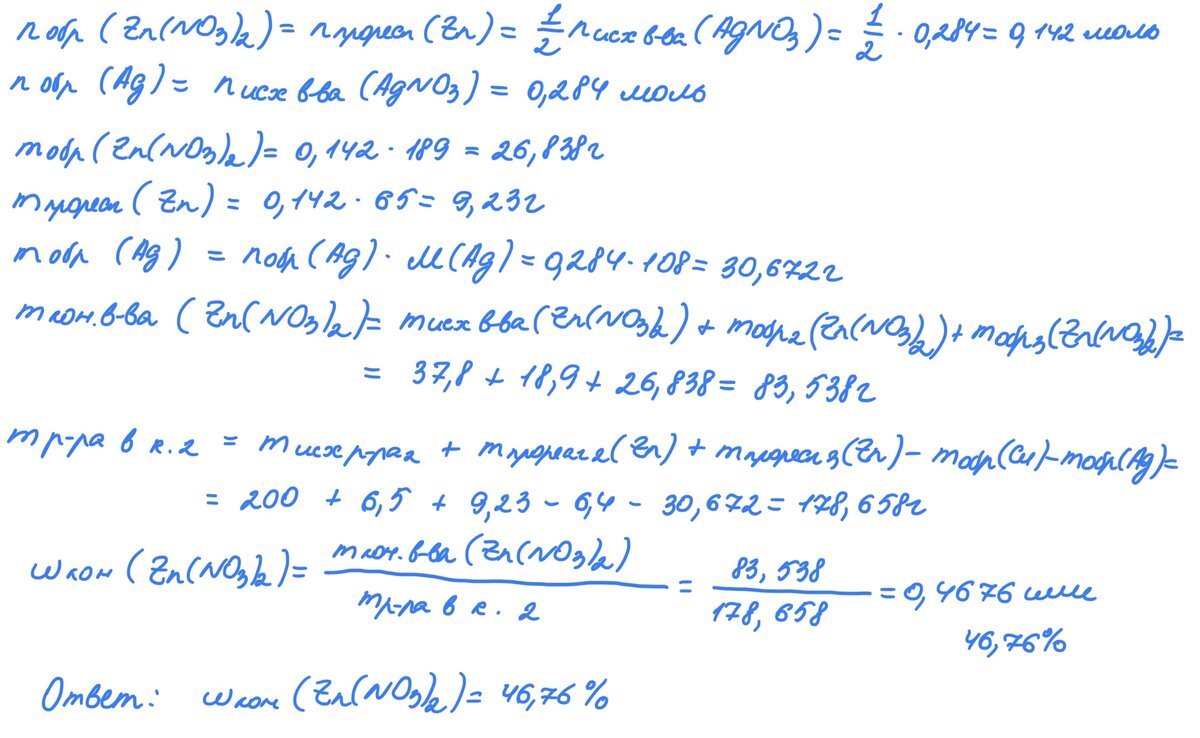 n обр (Zn(NO3)2) = n прореаг (Zn) = 1/2 n исх в-ва (AgNO3) = 1/2 · 0,284 = 0,142 моль
n обр (Ag) = n исх в-ва (AgNO3) = 0,284 моль
m обр (Zn(NO3)2) = 0,142 · 189 = 26,838г
m прореаг (Zn) = 0,142 · 65 = 9,23г
m обр (Ag) = n обр (Ag) · M(Ag) = 0,284 · 108 = 30,672г
m кон. в-ва (Zn(NO3)2) = m исх в-ва (Zn(NO3)2) + m обр2 (Zn(NO3)2) + m обр3 (Zn(NO3)2) =
= 37,8 + 18,9 + 26,838 = 83,538г
m р-ра в к. 2 = m исх р-ра2 + m прореаг2 (Zn) + m прореаг3 (Zn) - m обр(Cu) - m обр(Ag) =
= 200 + 6,5 + 9,23 - 6,4 - 30,672 = 178,658г
w кон (Zn(NO3)2) = m кон. в-ва (Zn(NO3)2) / m р-ра в к. 2 = 83,538 / 178,658 = 0,4676 или
46,76%
Ответ: w кон (Zn(NO3)2) = 46,76 %